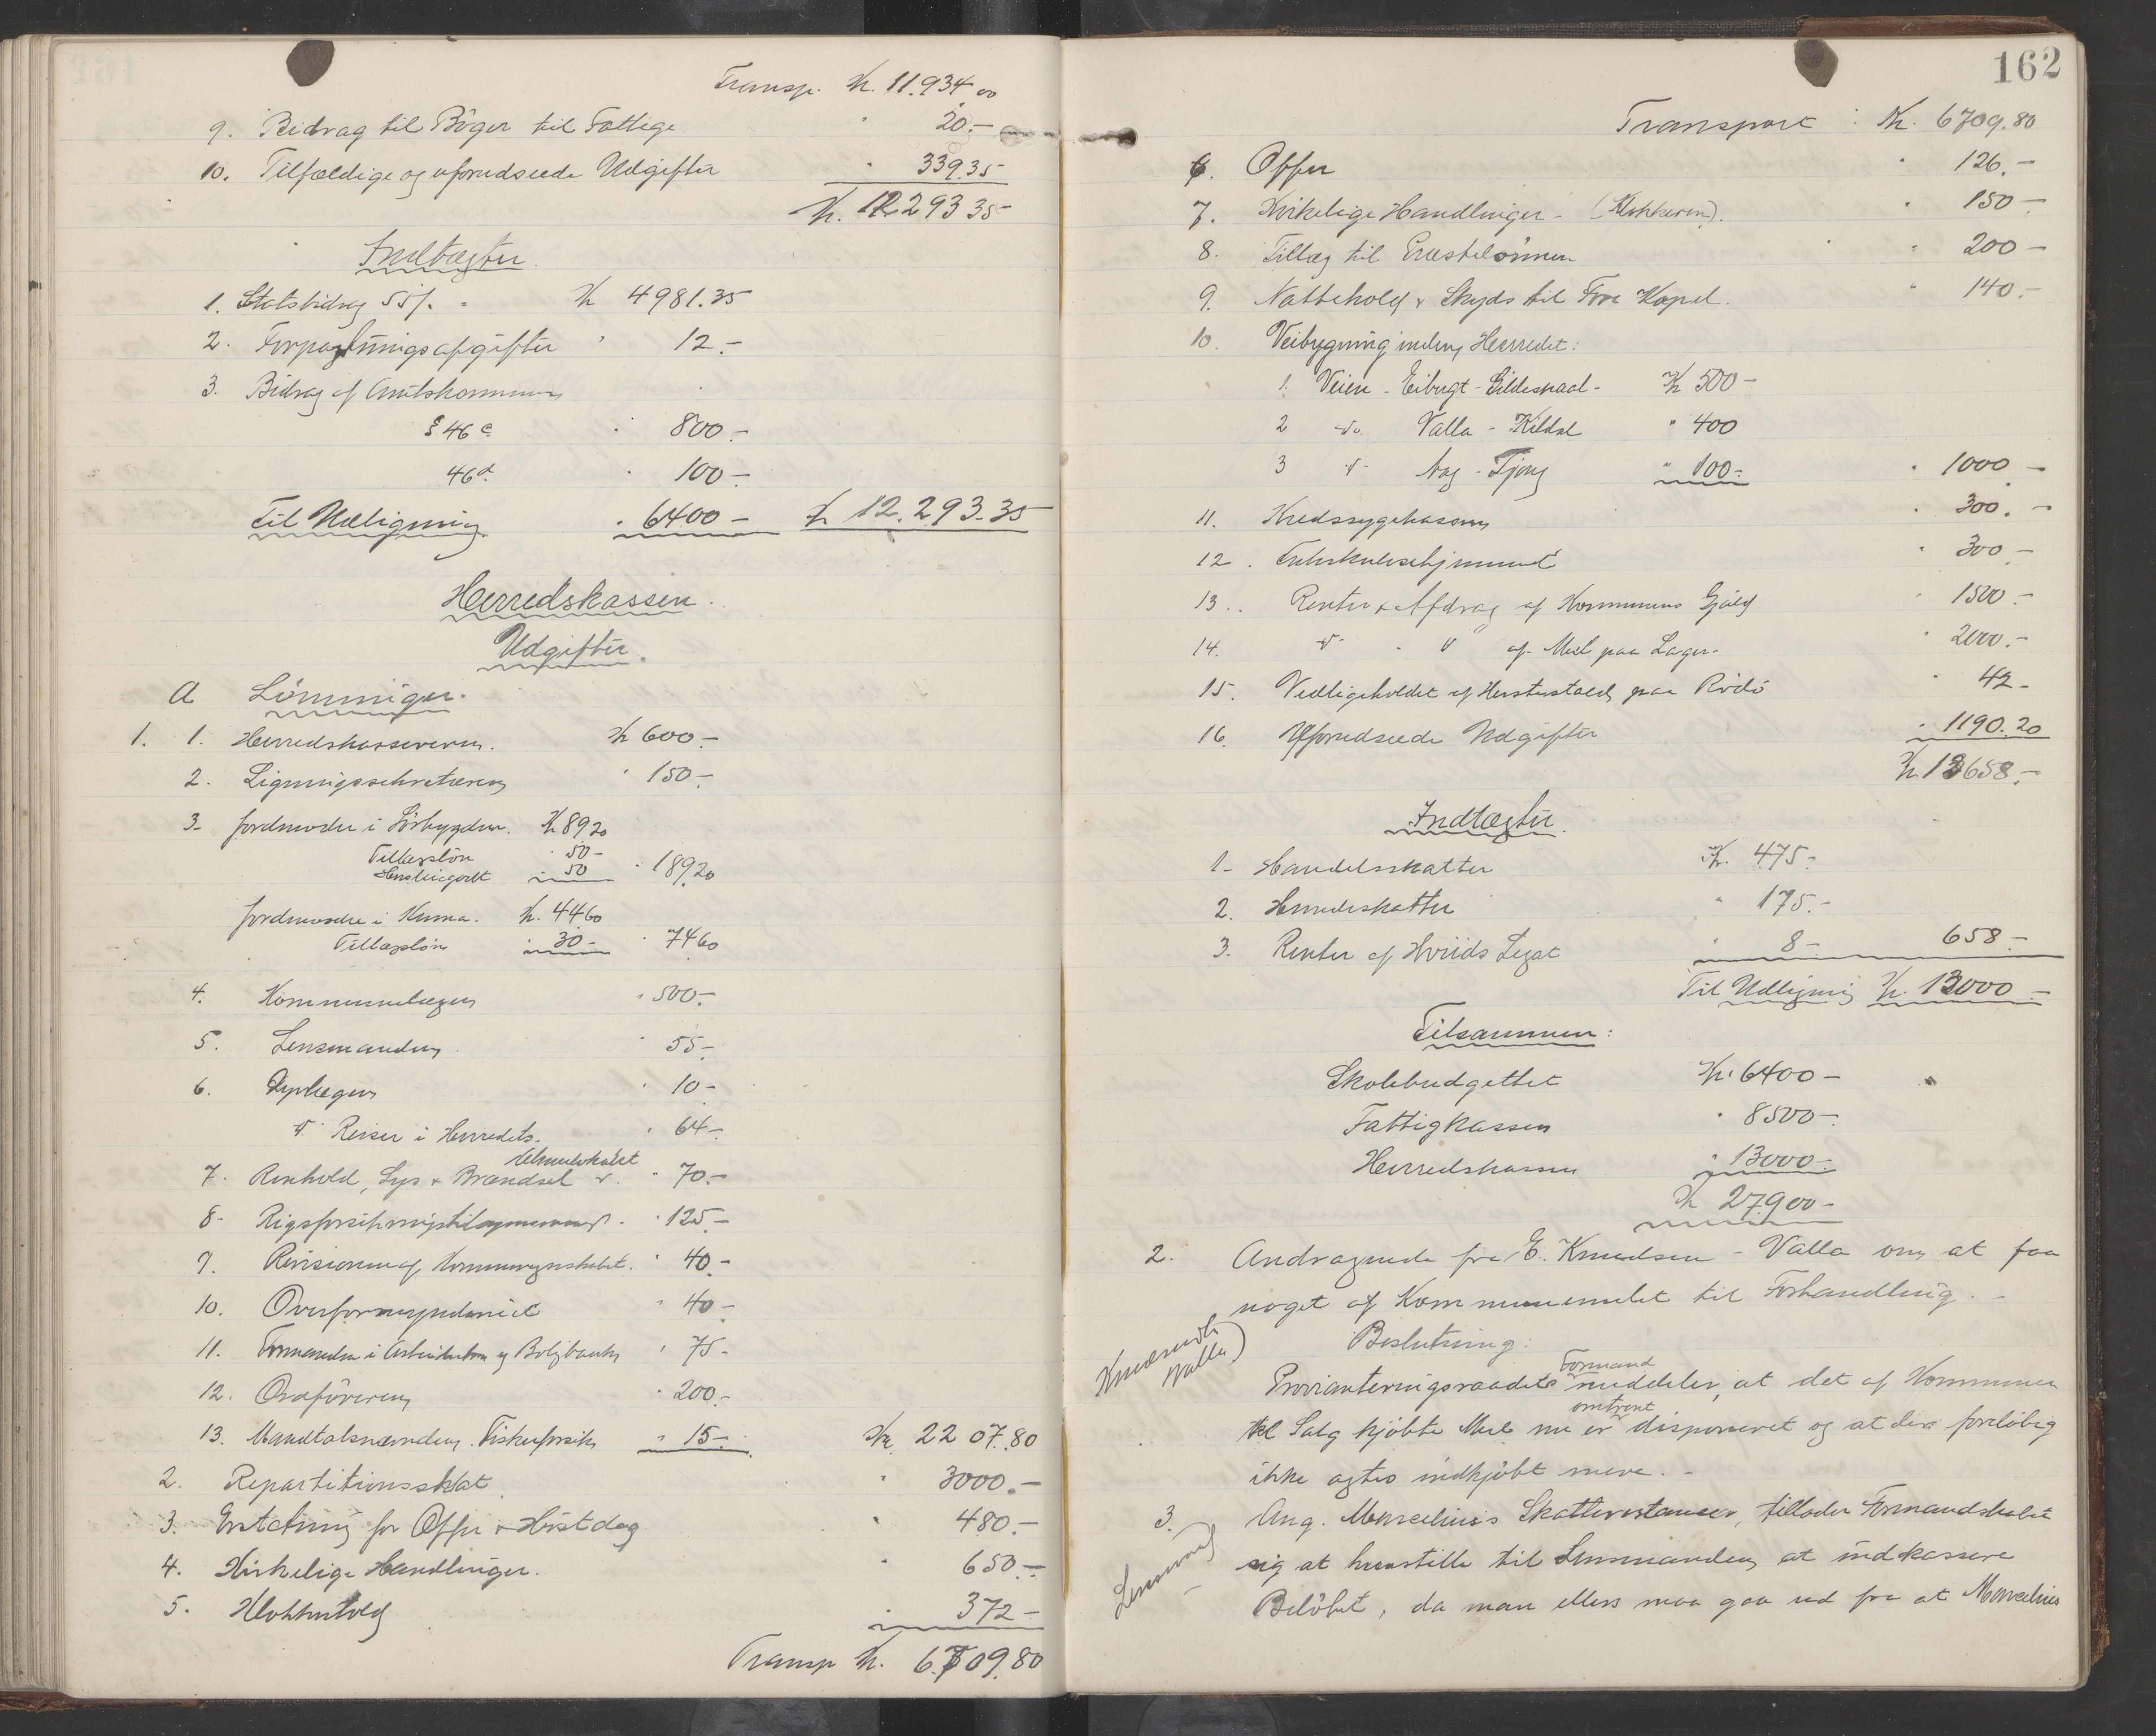 Transp. Kr. 11.934.00
9. Bidrag til Bøger til Fattige " 20.-
10. Tilfældige og uforudseede Udgifter " 339.35
Kr. 12293 35
Indtægter.
1. Statsbidrag 55%. " Kr 4981.35
2. Forpagtningsafgifter " 12.-
3. Bidrag af Amtskommunen
§ 46 c. " 800.-
46 d. " 100.-
Til Udligning " 6400 - Kr 12.293.35
Herredskassen.
Udgifter.
A Lønninger.
1. 1. Herredskassereren. Kr 600 -
2. Ligningssekretæren " 150.-
3. Jordmoder i Sørbygden. Kr 89 20
Tillægsløn " 50 -
Husleiegodt " 50 " 189 20
Jordmoder i Kunna. Kr. 44 60
Tillægsløn " 30 - " 74 60
4. Kommunelægen " 500.-
5. Lensmanden " 55.-
6. Dyrlægen " 10 -
do. Reiser i Herredet. " 64 -
7. Renhold, Lys & Brændsel " 70.-
8. " 125.-
9. Revisionen af Kommuneregnskabet. " 40.-
10. Overformynderiet " 40 -
11. Formanden i Arbeiderbr. og Boligbanken " 75 -
12. Ordføreren " 200.-
13. Mandtalsnævnden. Fiskerforsikr. " 15 - Kr. 2207.80
2. Repartitionsskat " 3000.-
3. Erstatning for Offer & Høstdag " 480.-
4. Kirkelige Handlinger. " 650.-
5. Klokkertold " 372 -
Transp Kr. 6709.80
162
Transport : Kr. 6709.80
6. Offer " 126.-
7. Kirkelige Handlinger - (Klokkeren). " 150 -
8. Tillæg til Præstelønnen " 200 -
9. Nattehold & Skyds til Fore Kapel. " 140.-
10. Veibygning inden Herredet:
1. Veien - Eibugt - Gildeskaal - Kr 500 -
2 do. Valla - Kildal " 400
3 do - Aag - Tjong " 100 - " 1000 -
11. Kredssygekassen " 300.-
12. " 300 -
13. Renter & Afdrag af Kommunens Gjæld " 1500 -
14. do " do af Mel paa Lager. " 2000.-
15. Vedligeholdet af Hestestald paa Rødø " 42 -
16. Uforudseede Udgifter " 1190.20
Kr. 13658.-
Indtægter.
1 - Handelsskatter Kr. 475 -
2. Hundeskatter " 175.-
3. Renter af Hvids Legat " 8 - 658 -
Til Udligning Kr. 13000 -
Tilsammen:
Skolebudgettet Kr. 6400 -
Fattigkassen " 8500 -
Herredskassen " 13000 -
Kr 27900 -
2. Andragende fra E. Knudsen - Valla om at faa
noget af Kommunemelet til Forhandling. -
Knudsen
Valla
Beslutning:
Formand
Provianteringsraadets meddeler, at det af Kommunen
omtrent
til Salg kjøbte Mel nu er disponeret og at der foreløbig
ikke agtes indkjøbt mere. -
3. Ang. Marcelius's Skatterestancer, tillader Formandskabet
Lensmand
sig at henstille til Lensmanden at indkassere
Beløbet, da man ellers maa gaa ud fra at Marcelius